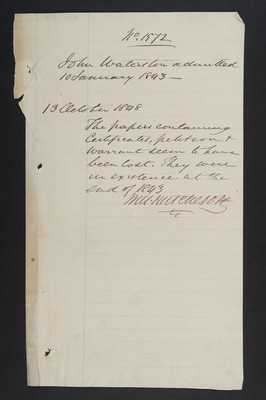 No. 1872
John Waterston admitted
10 January 1843 —
13 October 1898
The papers containing
Certificates, petition &
Warrant seem to have
been lost. They were
in existence at the
end of 1843